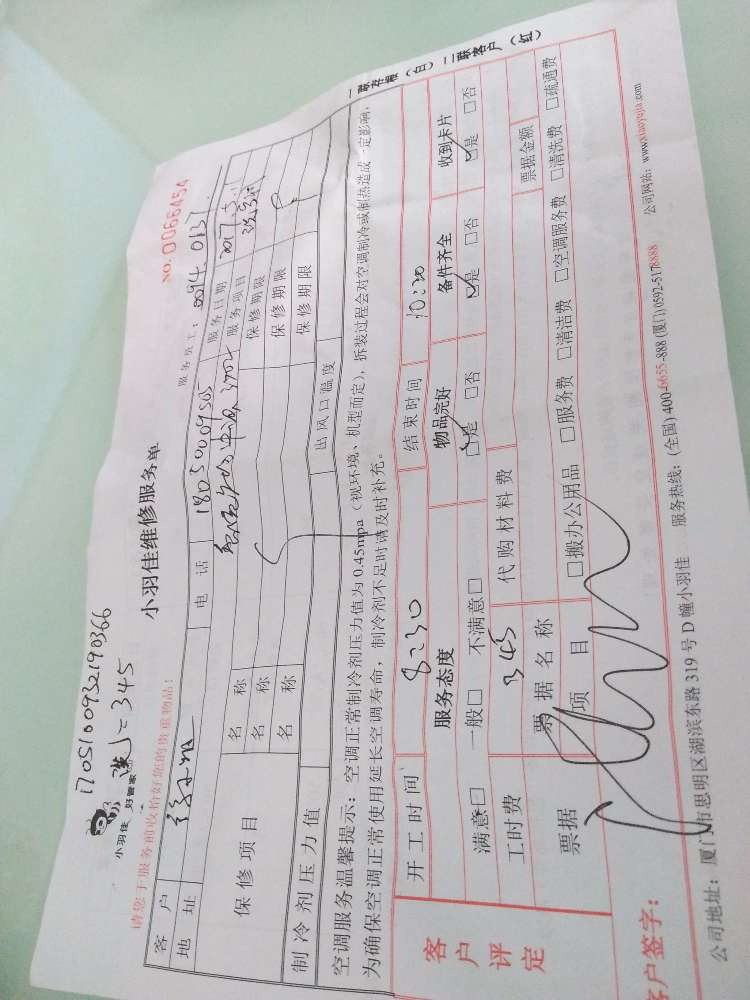 1705100932190366
小羽佳 好管家 满意=345
小羽佳维修服务单
NO. 0066454
请您于服务前收拾好您的贵重物品:
服务员工: 0094 0137
客户
电话 18050009505
服务日期 2017.5.
地址
服务项目
保修项目
名称
保修期限
名称
保修期限
名称
保修期限
制冷剂压力值
出风口温度
空调服务温馨提示:空调正常制冷剂压力值为0.45mpa(视环境、机型而定),拆装过程会对空调制冷或制热造成一定影响,
为确保空调正常使用延长空调寿命,制冷剂不足时请及时补充。
一联存根(白) 二联客户(红)
客户评定
开工时间 8:30
结束时间 10:30
服务态度
物品完好
备件齐全
收到卡片
满意□ 一般□ 不满意□
□是 □否
□是 □否
□是 □否
工时费 345
代购材料费
票据名称
票据金额
票据项目
□搬办公用品 □服务费 □清洁费 □空调服务费 □清洗费 □疏通费
客户签字:
公司地址:厦门市思明区湖滨东路319号D幢小羽佳 服务热线:(全国)400-6655-888 (厦门)0592-5178888 公司网站:www.xiaoyujia.com